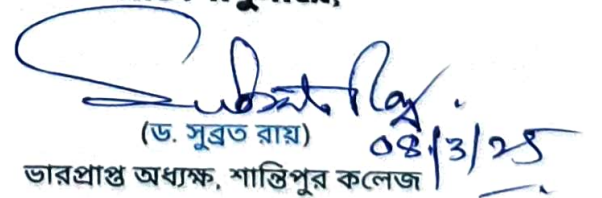 Subrata Roy.
(ড. সুব্রত রায়)
08/3/25
ভারপ্রাপ্ত অধ্যক্ষ, শান্তিপুর কলেজ